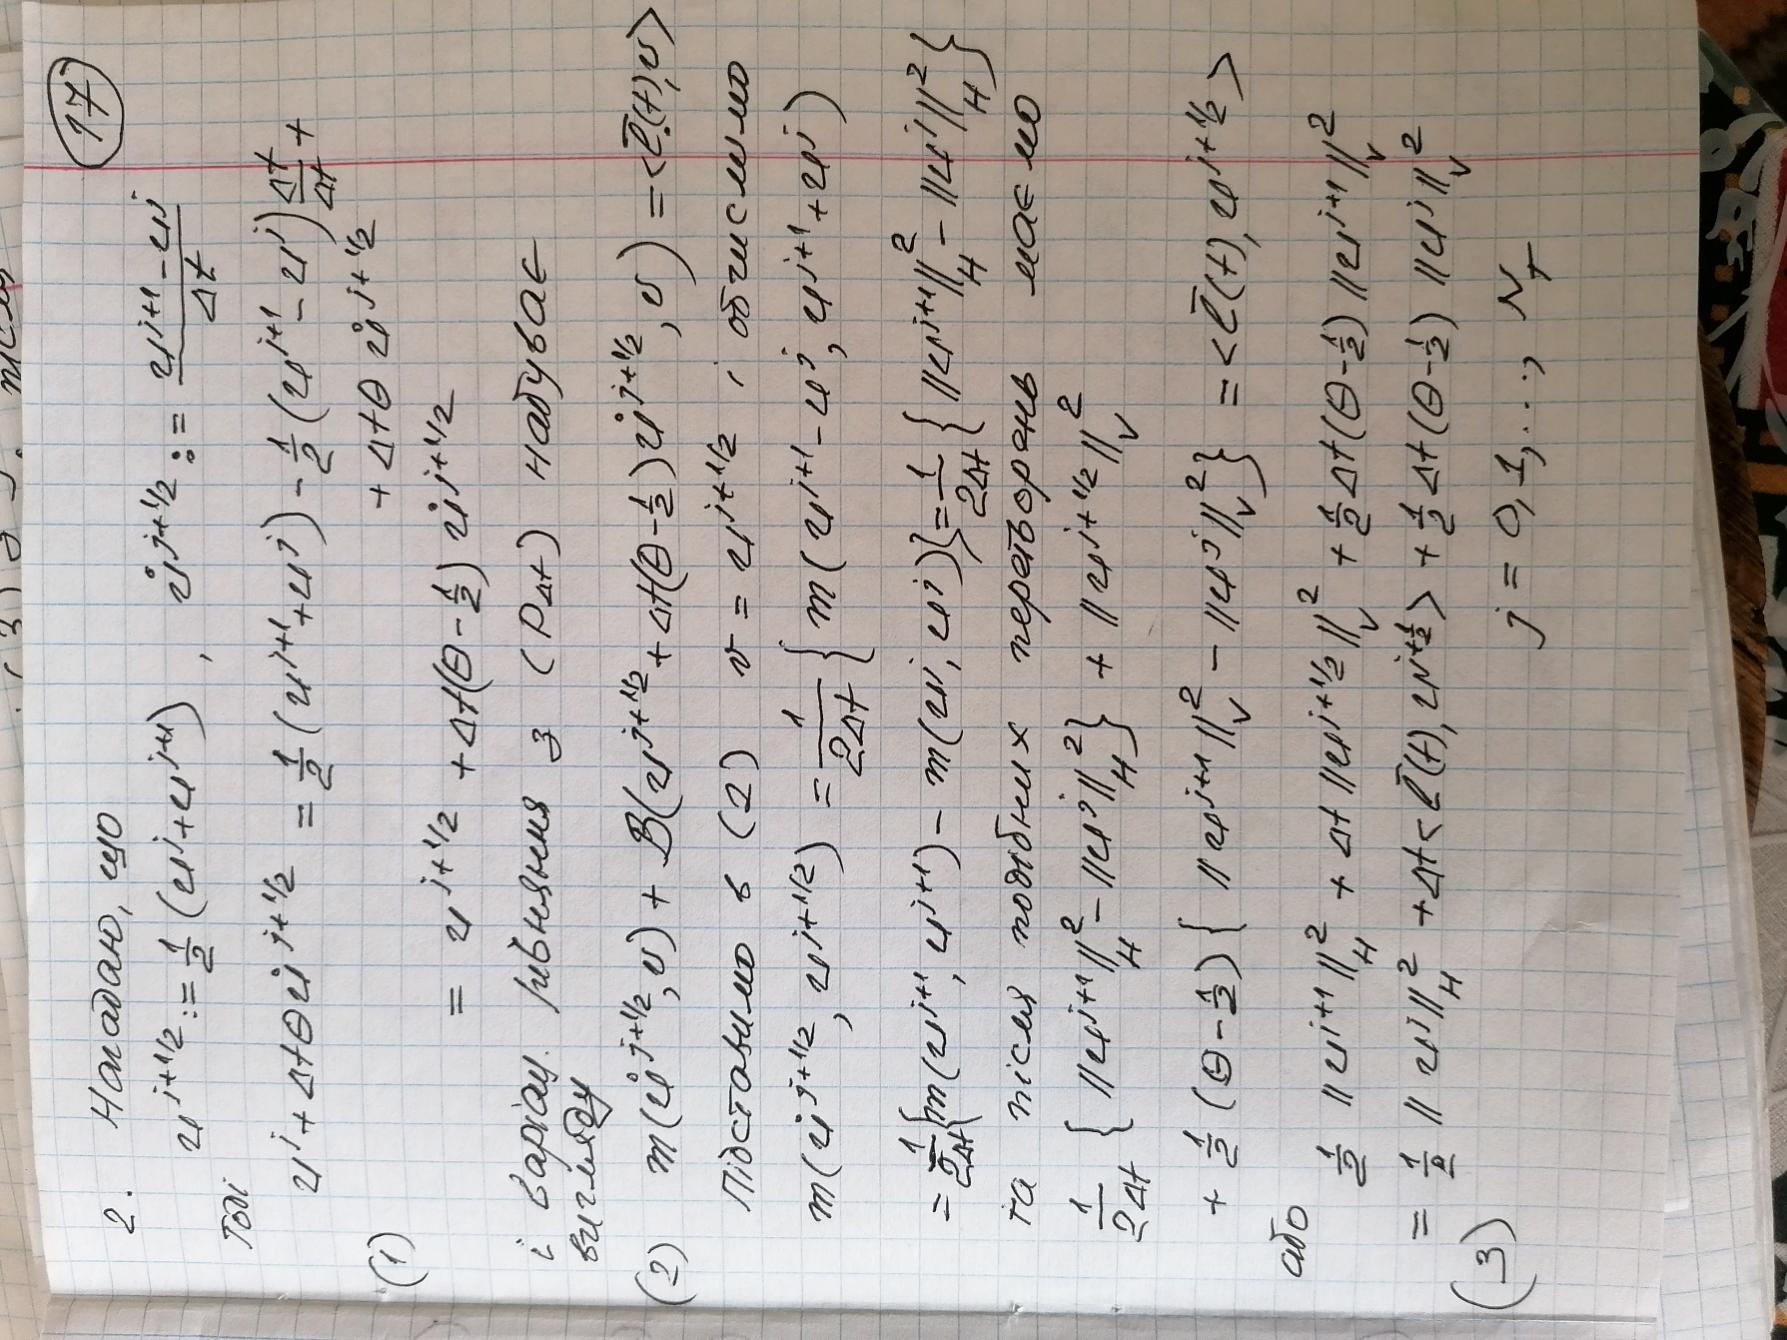 17
2. Нагадаю, що
u^{j+1/2} := 1/2 (u^j + u^{j+1}) , u̇^{j+1/2} := (u^{j+1} - u^j)/Δt
Тоді
u^j + Δtθu̇^{j+1/2} = 1/2 (u^{j+1} + u^j) - 1/2 (u^{j+1} - u^j) Δt/Δt +
+ Δtθ u̇^{j+1/2}
(1) = u^{j+1/2} + Δt(θ - 1/2) u̇^{j+1/2}
і варіац. рівняння з (P_{Δt}) набуває
вигляду
(2) m(u̇^{j+1/2}, v) + B(u^{j+1/2} + Δt(θ - 1/2) u̇^{j+1/2}, v) = <l̄(t), v>
Підставимо в (2) v = u^{j+1/2} і обчислимо
m(u̇^{j+1/2}, u^{j+1/2}) = 1/(2Δt) { m(u^{j+1} - u^j, u^{j+1} + u^j)
= 1/(2Δt) {m(u^{j+1}, u^{j+1}) - m(u^j, u^j)} = 1/(2Δt) { ||u^{j+1}||²_H - ||u^j||²_H }
та після подібних перетворень маємо
1/(2Δt) { ||u^{j+1}||²_H - ||u^j||²_H } + ||u^{j+1/2}||²_V
+ 1/2 (θ - 1/2) { ||u^{j+1}||²_V - ||u^j||²_V } = <l̄(t), u^{j+1/2}>
або
1/2 ||u^{j+1}||²_H + Δt ||u^{j+1/2}||²_V + 1/2 Δt(θ - 1/2) ||u^{j+1}||²_V
= 1/2 ||u^j||²_H + Δt <l̄(t), u^{j+1/2}> + 1/2 Δt(θ - 1/2) ||u^j||²_V
(3) j = 0, 1, ..., N_T